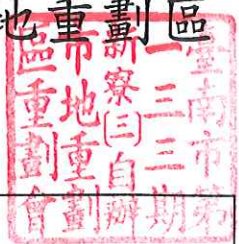 地重劃區
臺南市第
一三三期
新寮㈢自辦
市地重劃
區重劃會